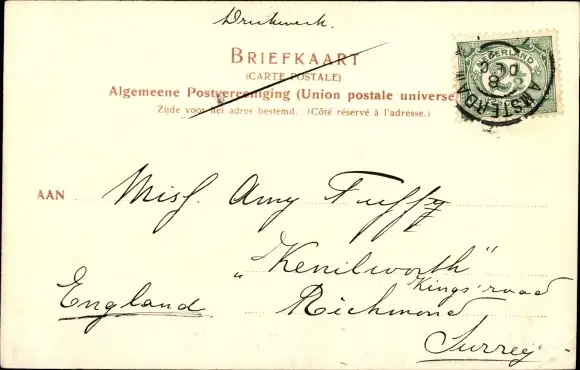 Drukwerk.
BRIEFKAART
(CARTE POSTALE)
Algemeene Postvereeniging (Union postale universe
Zijde voor het adres bestemd. (Côté réservé à l'adresse.)
NEDERLAND
2½
AMSTERDAM
AAN Miss. Amy
"Kenilworth"
Kings' road
England Richmond
Surrey